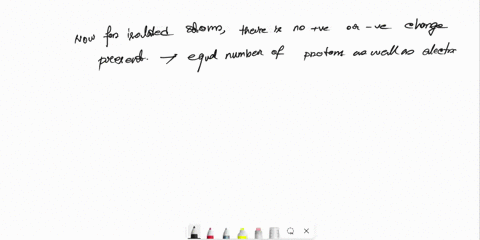 Now for isolated atoms, there is no +ve or -ve charge
present. → equal number of protons as well as electro